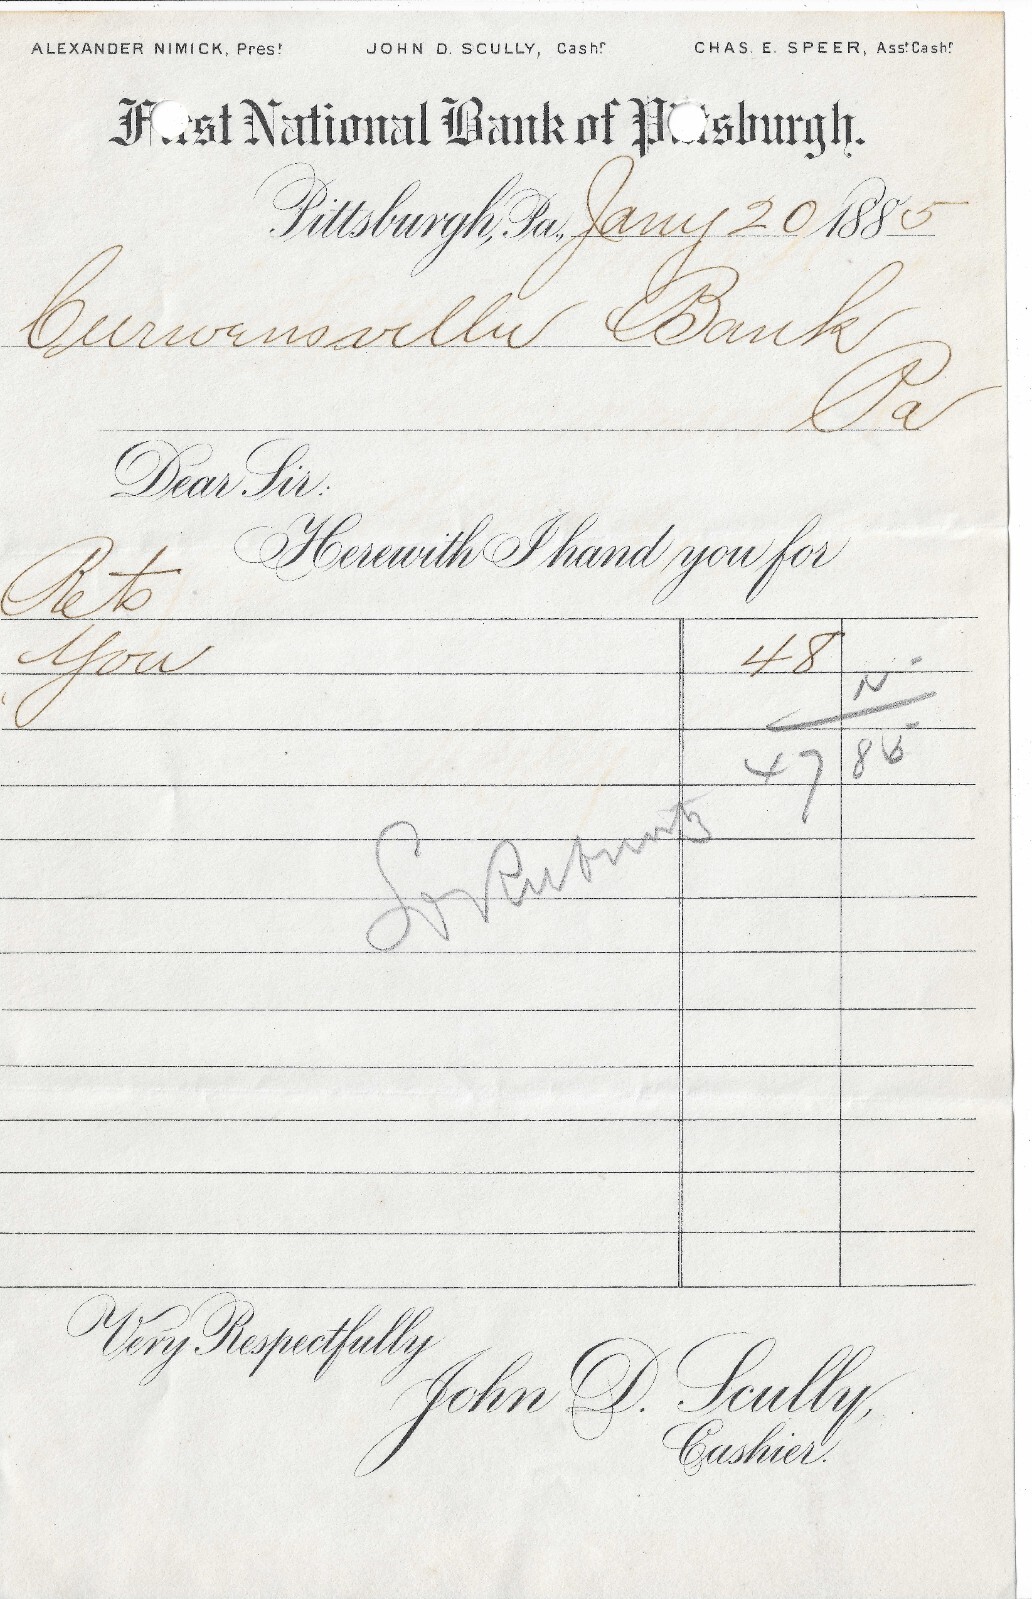 ALEXANDER NIMICK, Prest. JOHN D. SCULLY, Cashr. CHAS. E. SPEER, Asst. Cashr.
First National Bank of Pittsburgh.
Pittsburgh, Pa., Jany 20 1885
Curwensville Bank
Pa
Dear Sir:
Herewith I hand you for
Rets
You 48
47 85
Very Respectfully
John D. Scully,
Cashier.